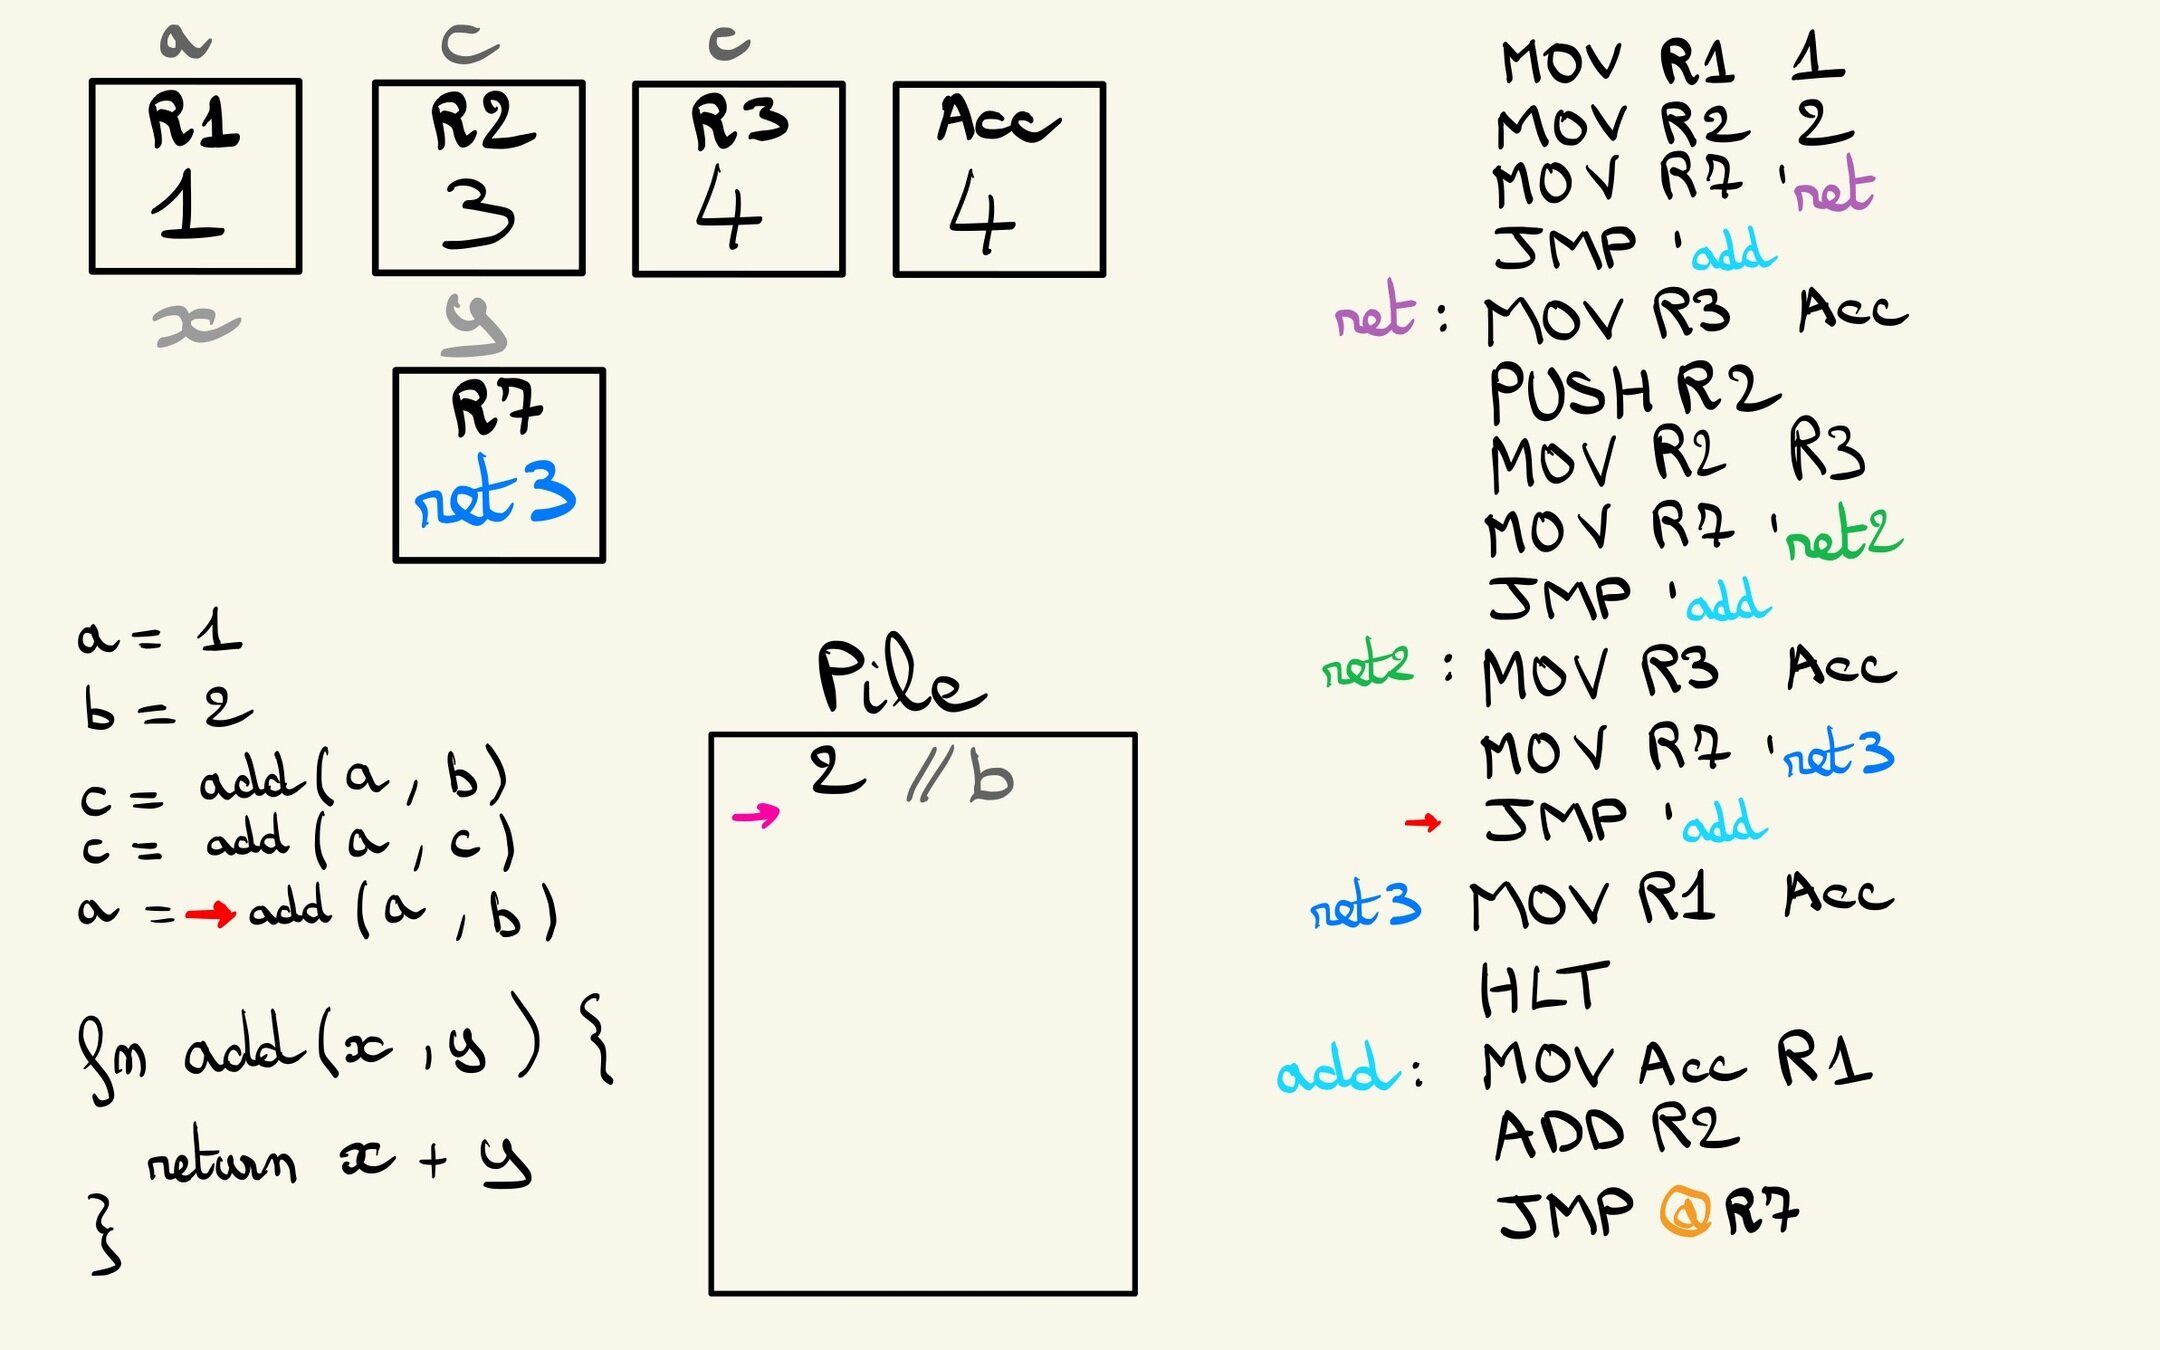 a c c
R1 R2 R3 Acc
1 3 4 4
x y
R7
ret3
a = 1
b = 2
c = add(a, b)
c = add(a, c)
a = → add(a, b)
fn add(x, y) {
return x + y
}
Pile
2 // b
→
MOV R1 1
MOV R2 2
MOV R7 'ret
JMP 'add
ret: MOV R3 Acc
PUSH R2
MOV R2 R3
MOV R7 'ret2
JMP 'add
ret2: MOV R3 Acc
MOV R7 'ret3
→ JMP 'add
ret3 MOV R1 Acc
HLT
add: MOV Acc R1
ADD R2
JMP @R7